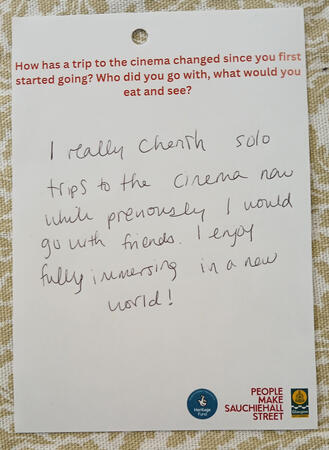 How has a trip to the cinema changed since you first
started going? Who did you go with, what would you
eat and see?
I really cherish solo
trips to the cinema now
while previously I would
go with friends. I enjoy
fully immersing in a new
world!
Heritage
Fund
PEOPLE
MAKE
SAUCHIEHALL
STREET